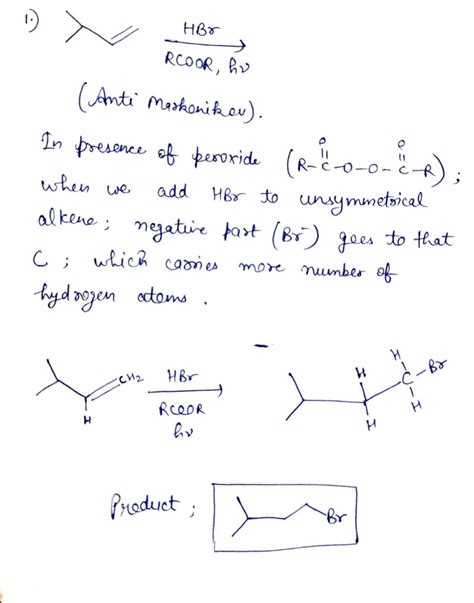 1.)
HBr
RCOOR, hν
(Anti Markonikov).
In presence of peroxide (R-C-O-O-C-R) ;
O O
when we add HBr to unsymmetrical
alkene ; negative part (Br⁻) goes to that
C ; which carries more number of
hydrogen atoms .
CH2
H
HBr
RCOOR
hν
H
H
C-Br
H
H
Product ;
Br